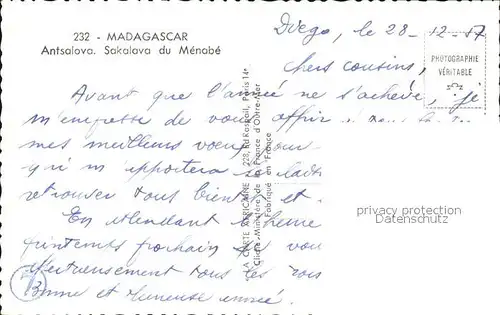 232 - MADAGASCAR
Antsalova. Sakalava du Ménabé
Diego, le 28-12-57
PHOTOGRAPHIE
VÉRITABLE
chers cousins,
Avant que l'année ne s'achève, je
m'empresse de vous offrir
mes meilleurs voeux pour
qu'il m'apportera
retrouver tous bientôt et
En attendant
printemps prochain vous
tous les trois
Bonne et heureuse année.
"LA CARTE AFRICAINE" 228, Bd Raspail, Paris 14e
Cliché-Ministère de la France d'Outre-Mer
Fabriqué en France
privacy protection
Datenschutz